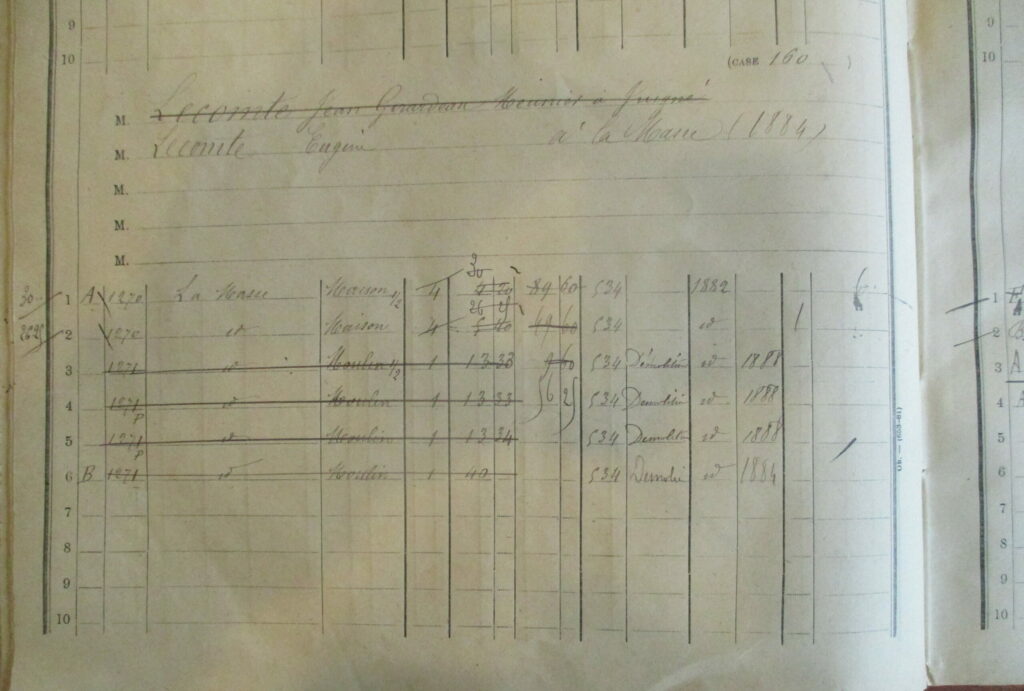 9
10
(CASE 160)
M. Lecomte Jean Girardeau Meunier à Juigné
M. Lecomte Eugène à la Masse (1884)
M.
M.
M.
30
30 1 A 1270 La Masse Maison 1/2 4 20 89 60 534 1882
26 25
2625 2 1270 id Maison 4 5 40 49 60 534 id 1
3 1271 id Moulin 1/2 1 13 33 9 60 534 Démolition id 1888
4 1271 p id Moulin 1 13 33 6 2 534 Démolition id 1888
5 1271 p id Moulin 1 13 34 534 Démolition id 1888
6 B 1271 id Moulin 1 40 534 Démoli id 1884
7
8
9
10
9
10
1
2
3 A
4
5
6
7
8
9
10